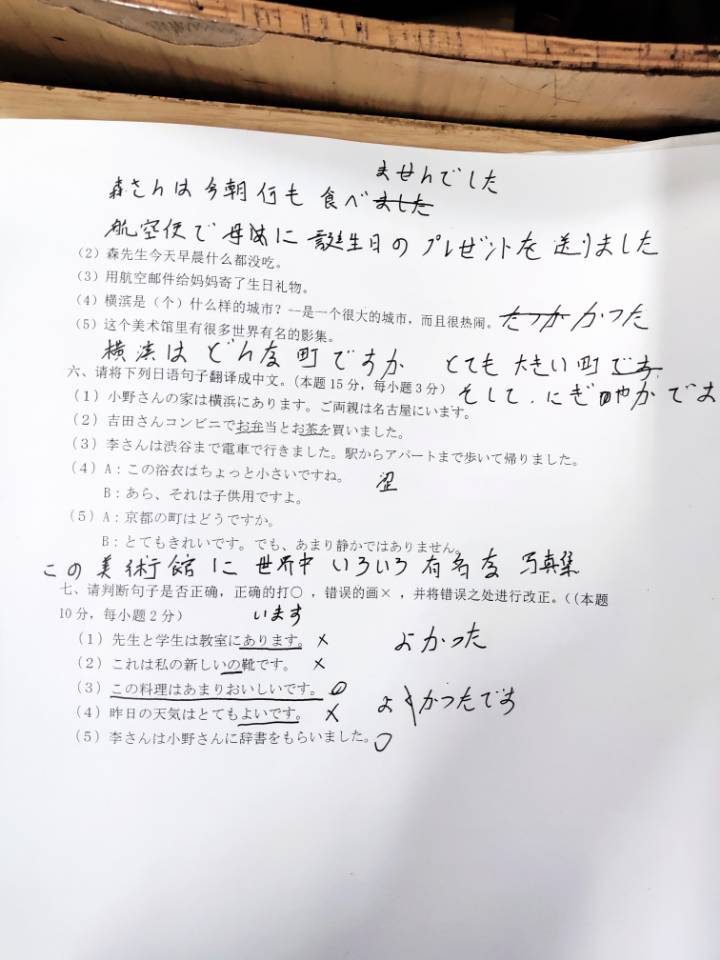 ませんでした
森さんは今朝何も食べました
航空便で母に誕生日のプレゼントを送りました
(2)森先生今天早晨什么都没吃。
(3)用航空邮件给妈妈寄了生日礼物。
(4)横滨是(个)什么样的城市?—是一个很大的城市,而且很热闹。 かった
(5)这个美术馆里有很多世界有名的影集。
横浜はどんな町ですか とても大きい町です
六、请将下列日语句子翻译成中文。(本题15分,每小题3分) そして、にぎやかです
(1)小野さんの家は横浜にあります。ご両親は名古屋にいます。
(2)吉田さんコンビニでお弁当とお茶を買いました。
(3)李さんは渋谷まで電車で行きました。駅からアパートまで歩いて帰りました。
(4)A:この浴衣はちょっと小さいですね。
B:あら、それは子供用ですよ。
(5)A:京都の町はどうですか。
B:とてもきれいです。でも、あまり静かではありません。
この美術館に世界中いろいろ有名な写真集
七、请判断句子是否正确,正确的打○,错误的画×,并将错误之处进行改正。((本题
10分,每小题2分) います
(1)先生と学生は教室にあります。 × よかった
(2)これは私の新しいの靴です。 ×
(3)この料理はあまりおいしいです。 ○
(4)昨日の天気はとてもよいです。 × よかったです
(5)李さんは小野さんに辞書をもらいました。○